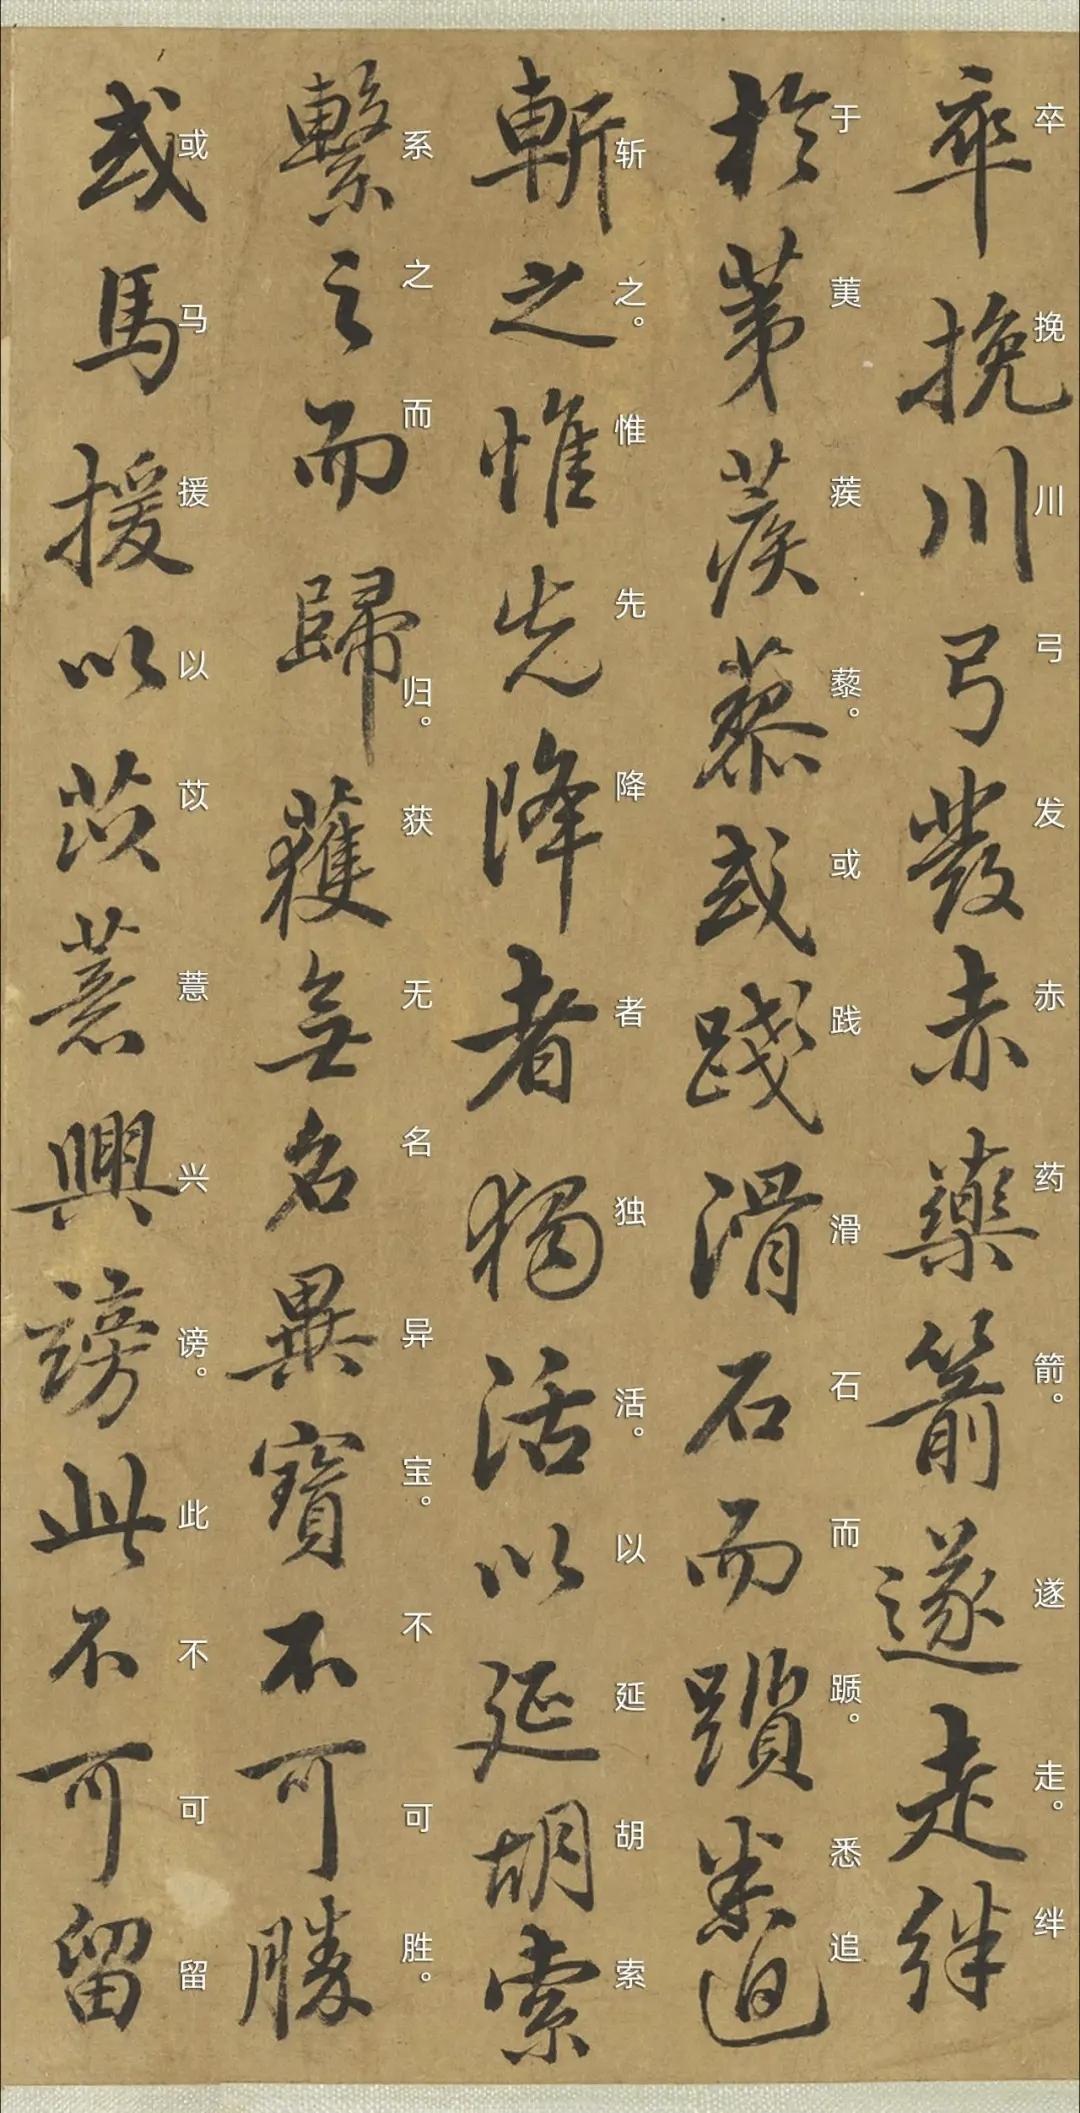 卒挽川弓發赤藥箭遂走絆
卒挽川弓发赤药箭。遂走。绊
於荑蒺藜或踐滑石而躓悉追
于荑蒺藜。或践滑石而踬。悉追
斬之惟先降者獨活以延胡索
斩之。惟先降者独活。以延胡索
繫之而歸獲無名異寶不可勝
系之而归。获无名异宝。不可胜。
或馬援以苡薏興謗此不可留
或马援以苡薏兴谤。此不可留